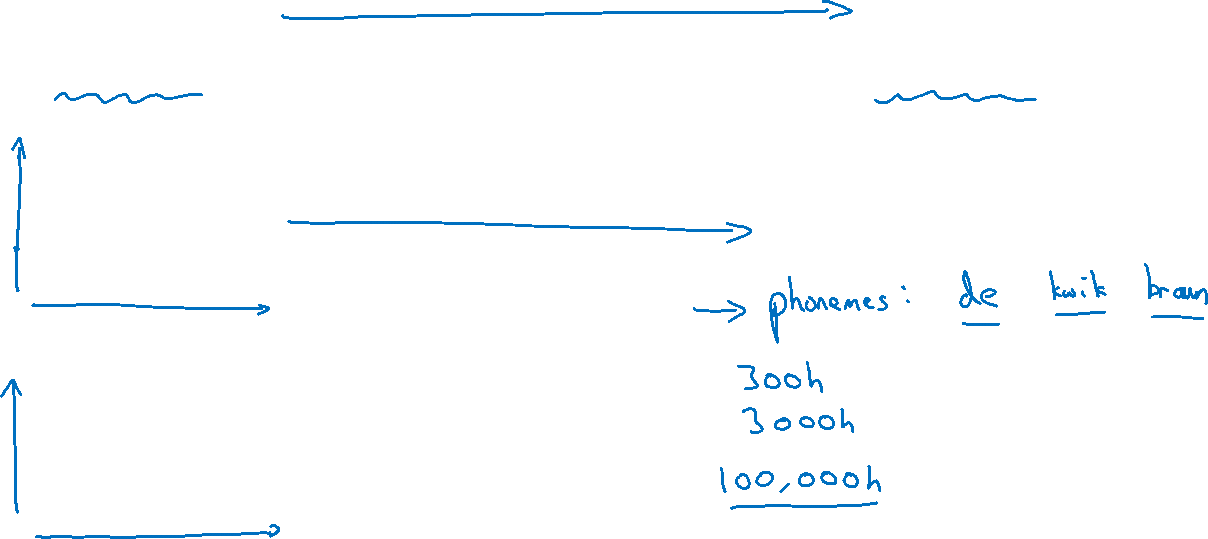 → phonemes: de kwik braun
300h
3000h
100,000h